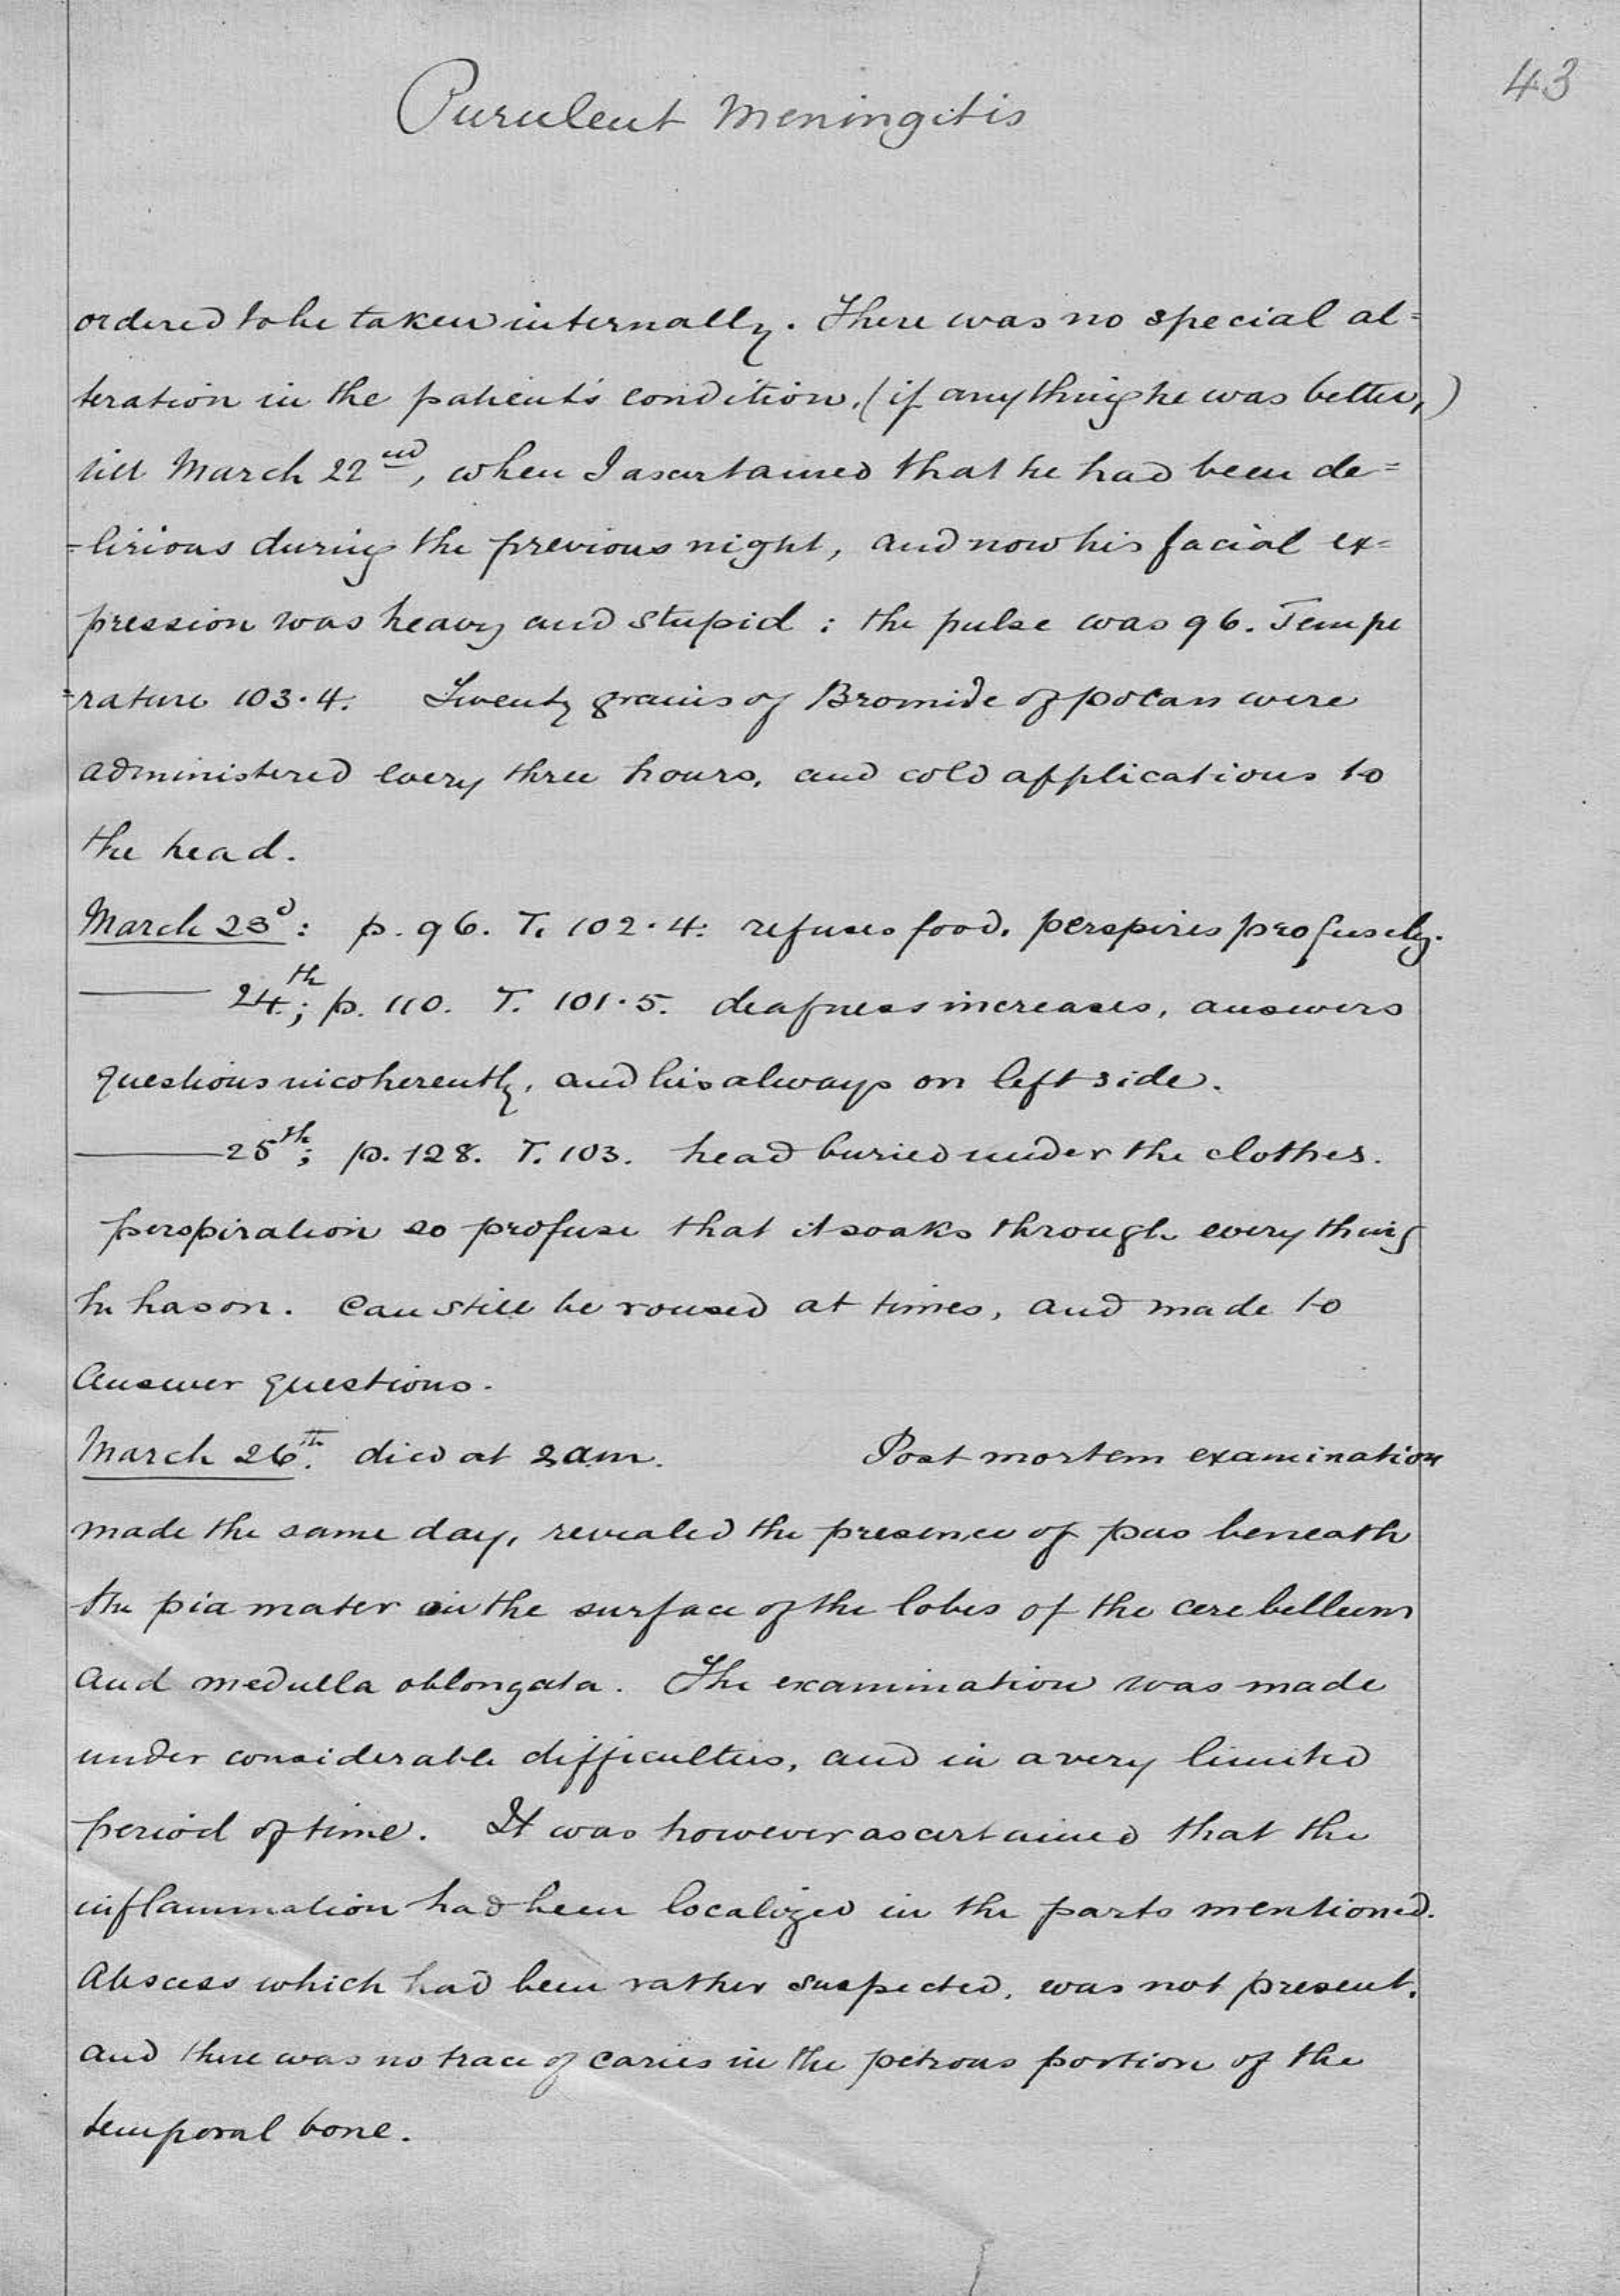 43
Purulent Meningitis
ordered to be taken internally. There was no special al=
teration in the patient's condition, (if anything he was better,)
till March 22nd, when I ascertained that he had been de=
=lirious during the previous night, and now his facial ex=
pression was heavy and stupid : the pulse was 96. Tempe
=rature 103.4. Twenty grains of Bromide of potass were
administered every three hours, and cold applications to
the head.
March 23d: p. 96. T. 102.4: refuses food. perspires profusely.
—— 24th; p. 110. T. 101.5. deafness increases, answers
questions incoherently, and lies always on left side.
—— 25th; p. 128. T. 103. head buried under the clothes.
perspiration so profuse that it soaks through every thing
he has on. Can still be roused at times, and made to
answer questions.
March 26th. died at 2 am. Post mortem examination
made the same day, revealed the presence of pus beneath
the pia mater on the surface of the lobes of the cerebellum
and medulla oblongata. The examination was made
under considerable difficulties, and in a very limited
period of time. It was however ascertained that the
inflammation had been localized in the parts mentioned.
Abscess which had been rather suspected, was not present,
and there was no trace of caries in the petrous portion of the
temporal bone.